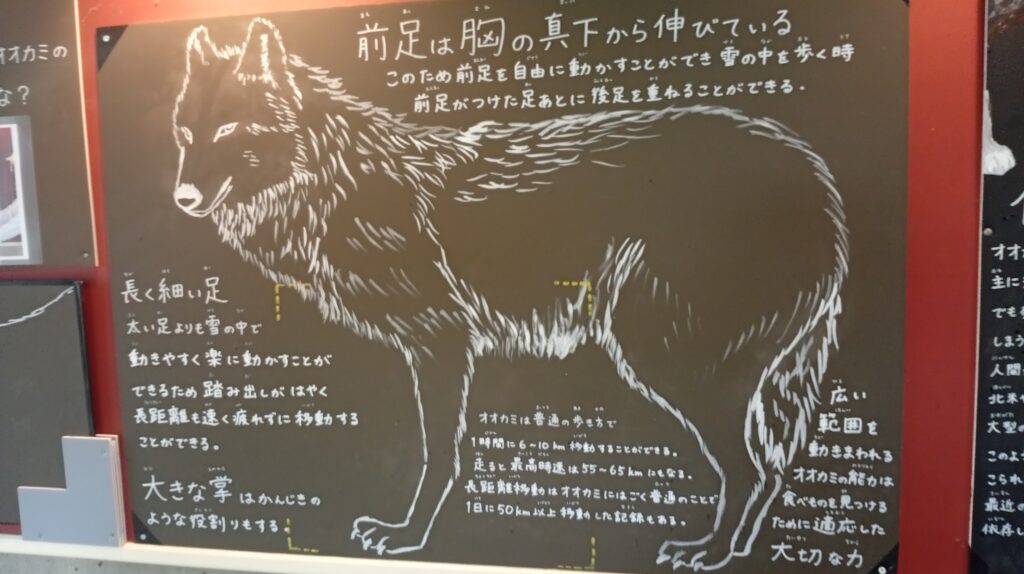 オオカミの
な？
前足は胸の真下から伸びている
このため前足を自由に動かすことができ 雪の中を歩く時
前足がつけた足あとに後足を重ねることができる。
長く細い足
太い足よりも雪の中で
動きやすく楽に動かすことが
できるため 踏み出しが はやく
長距離も速く疲れずに移動する
ことができる。
大きな掌はかんじきの
ような役割りもする。
オオカミは普通の歩き方で
1時間に6~10km移動することができる。
走ると最高時速は55~65kmにもなる。
長距離移動はオオカミにはごく普通のことで
1日に50km以上移動した記録もある。
広い
範囲を
動きまわれる
オオカミの能力は
食べものを見つける
ために適応した
大切な力
オオ
主に
でも
しまう
人間
北米
大型の
このよ
こられ
最近の
依存し